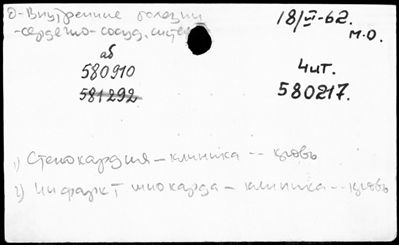 д-Внутренние болезни 18/III-62.
-сердечно-сосуд. систе м.о.
аб
580910 Чит.
581292 580217.
1) Стенокардия - клиника -- кровь
2) Инфаркт миокарда - клиника -- кровь